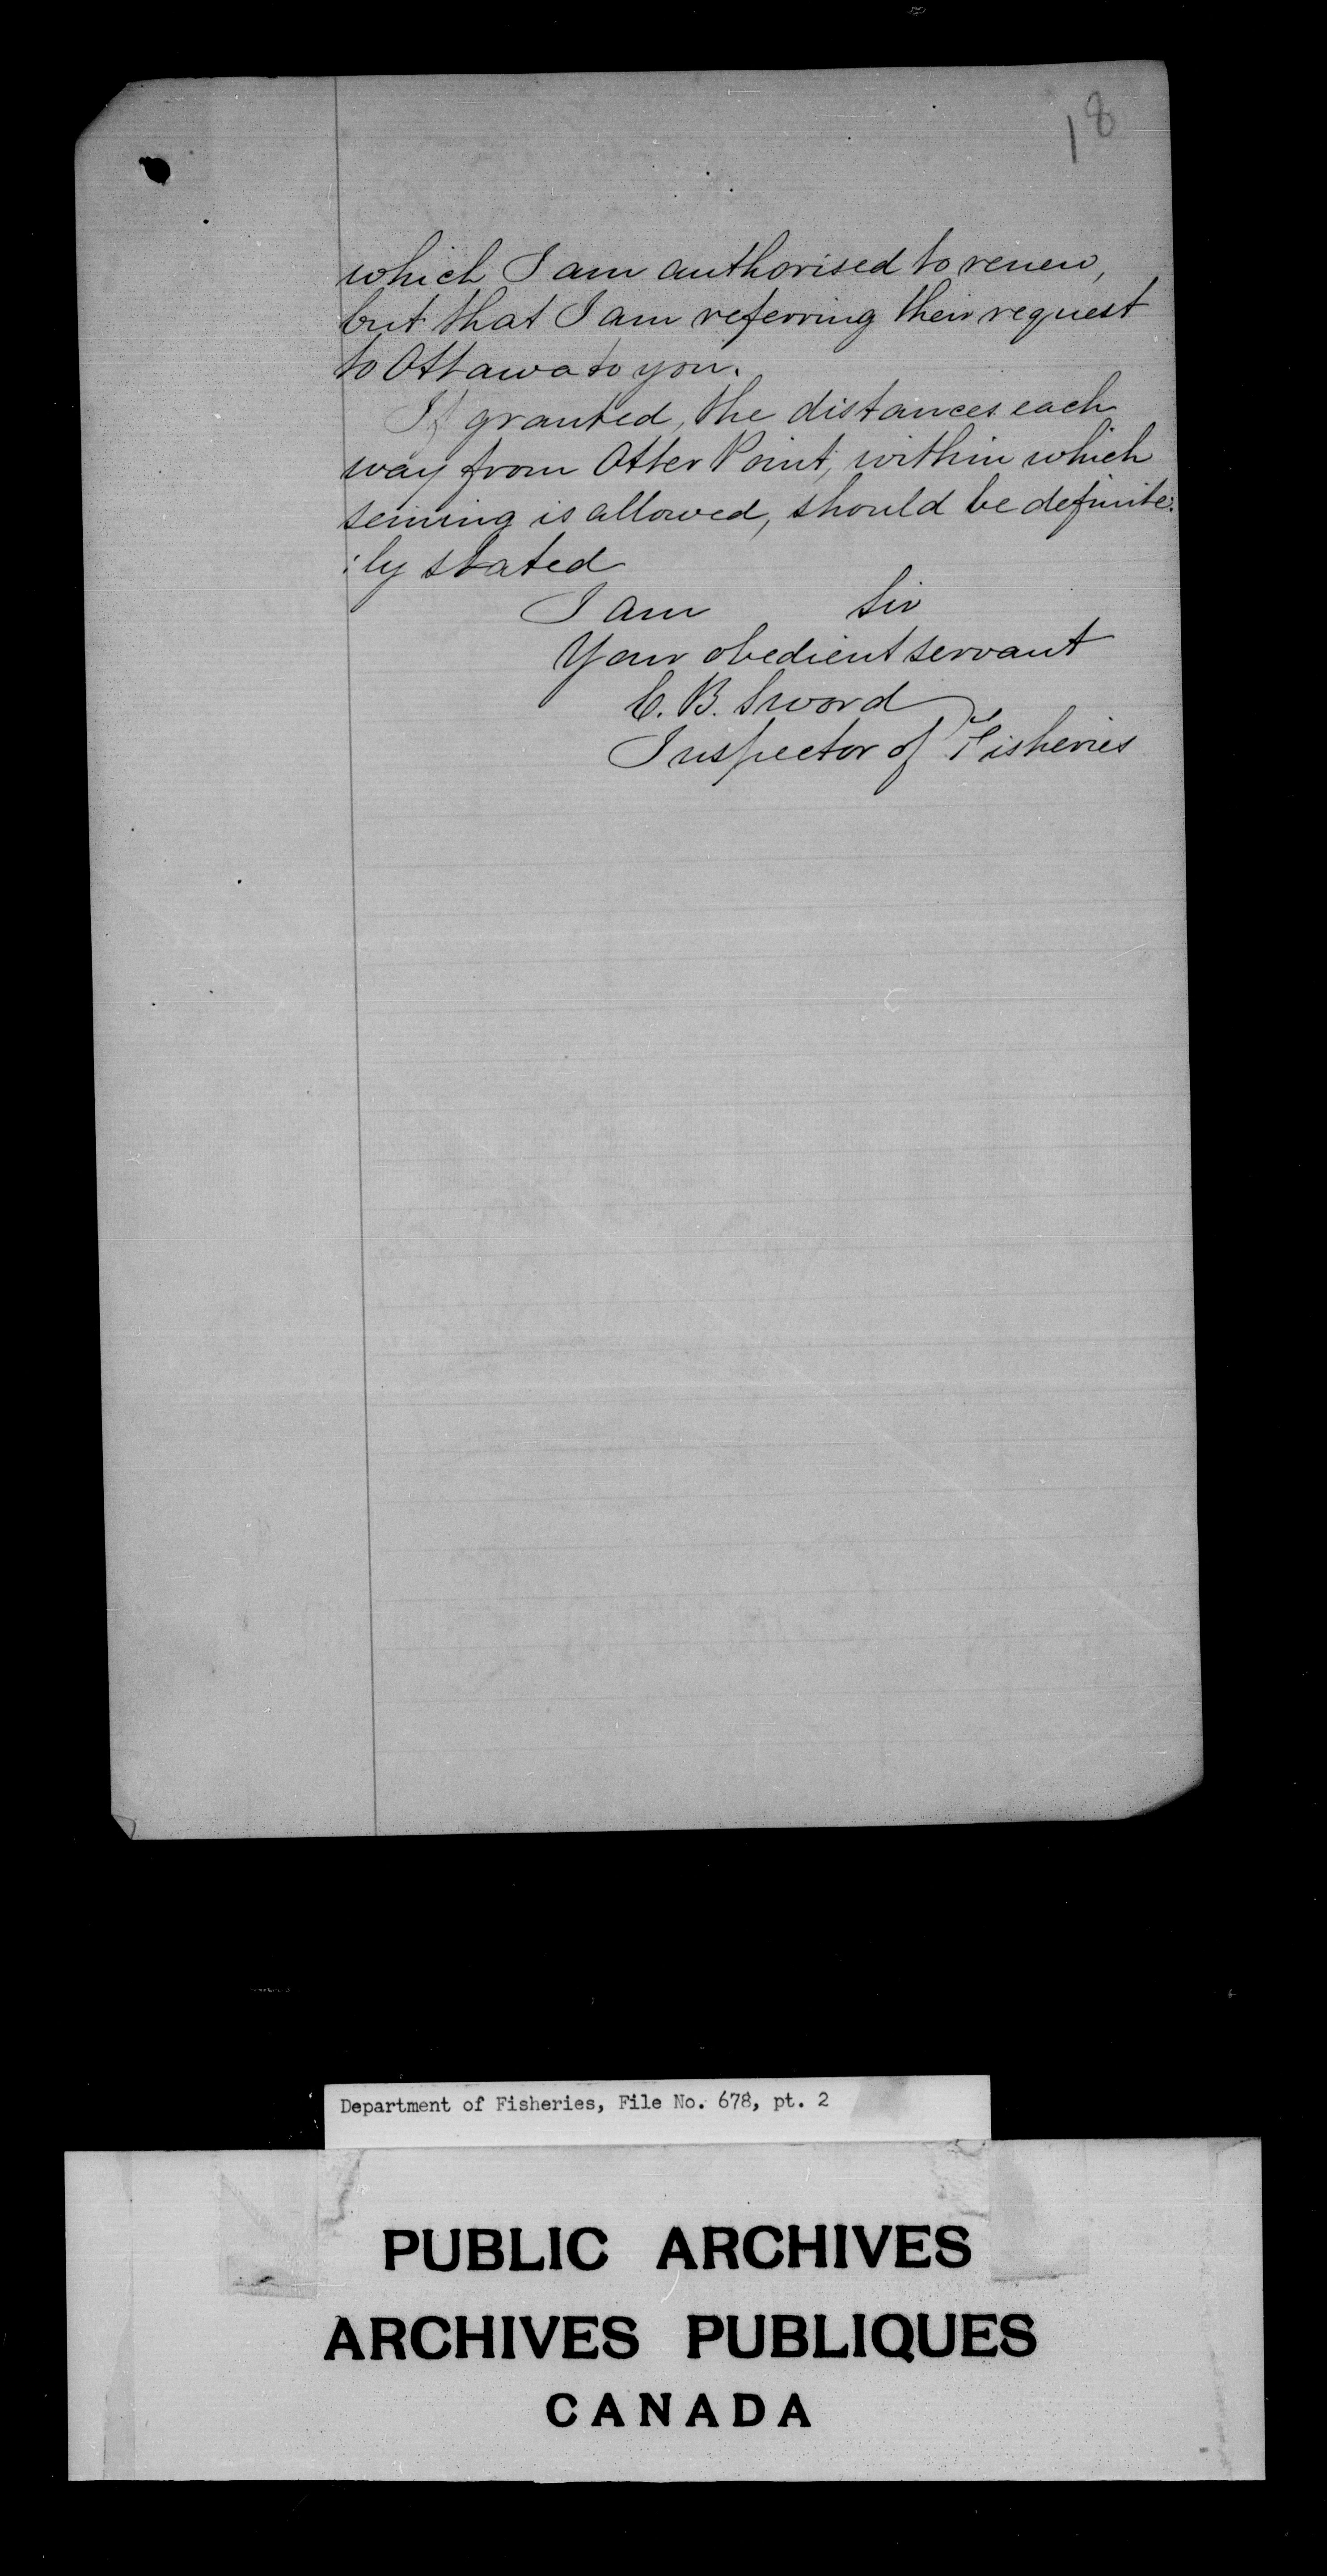 18
which I am authorised to renew,
but that I am referring their request
to Ottawa to you.
If granted, the distances each
way from Otter Point, within which
seining is allowed, should be definite:
:ly stated
I am Sir
Your obedient servant
C. B. Sword
Inspector of Fisheries
Department of Fisheries, File No. 678, pt. 2
PUBLIC ARCHIVES
ARCHIVES PUBLIQUES
CANADA